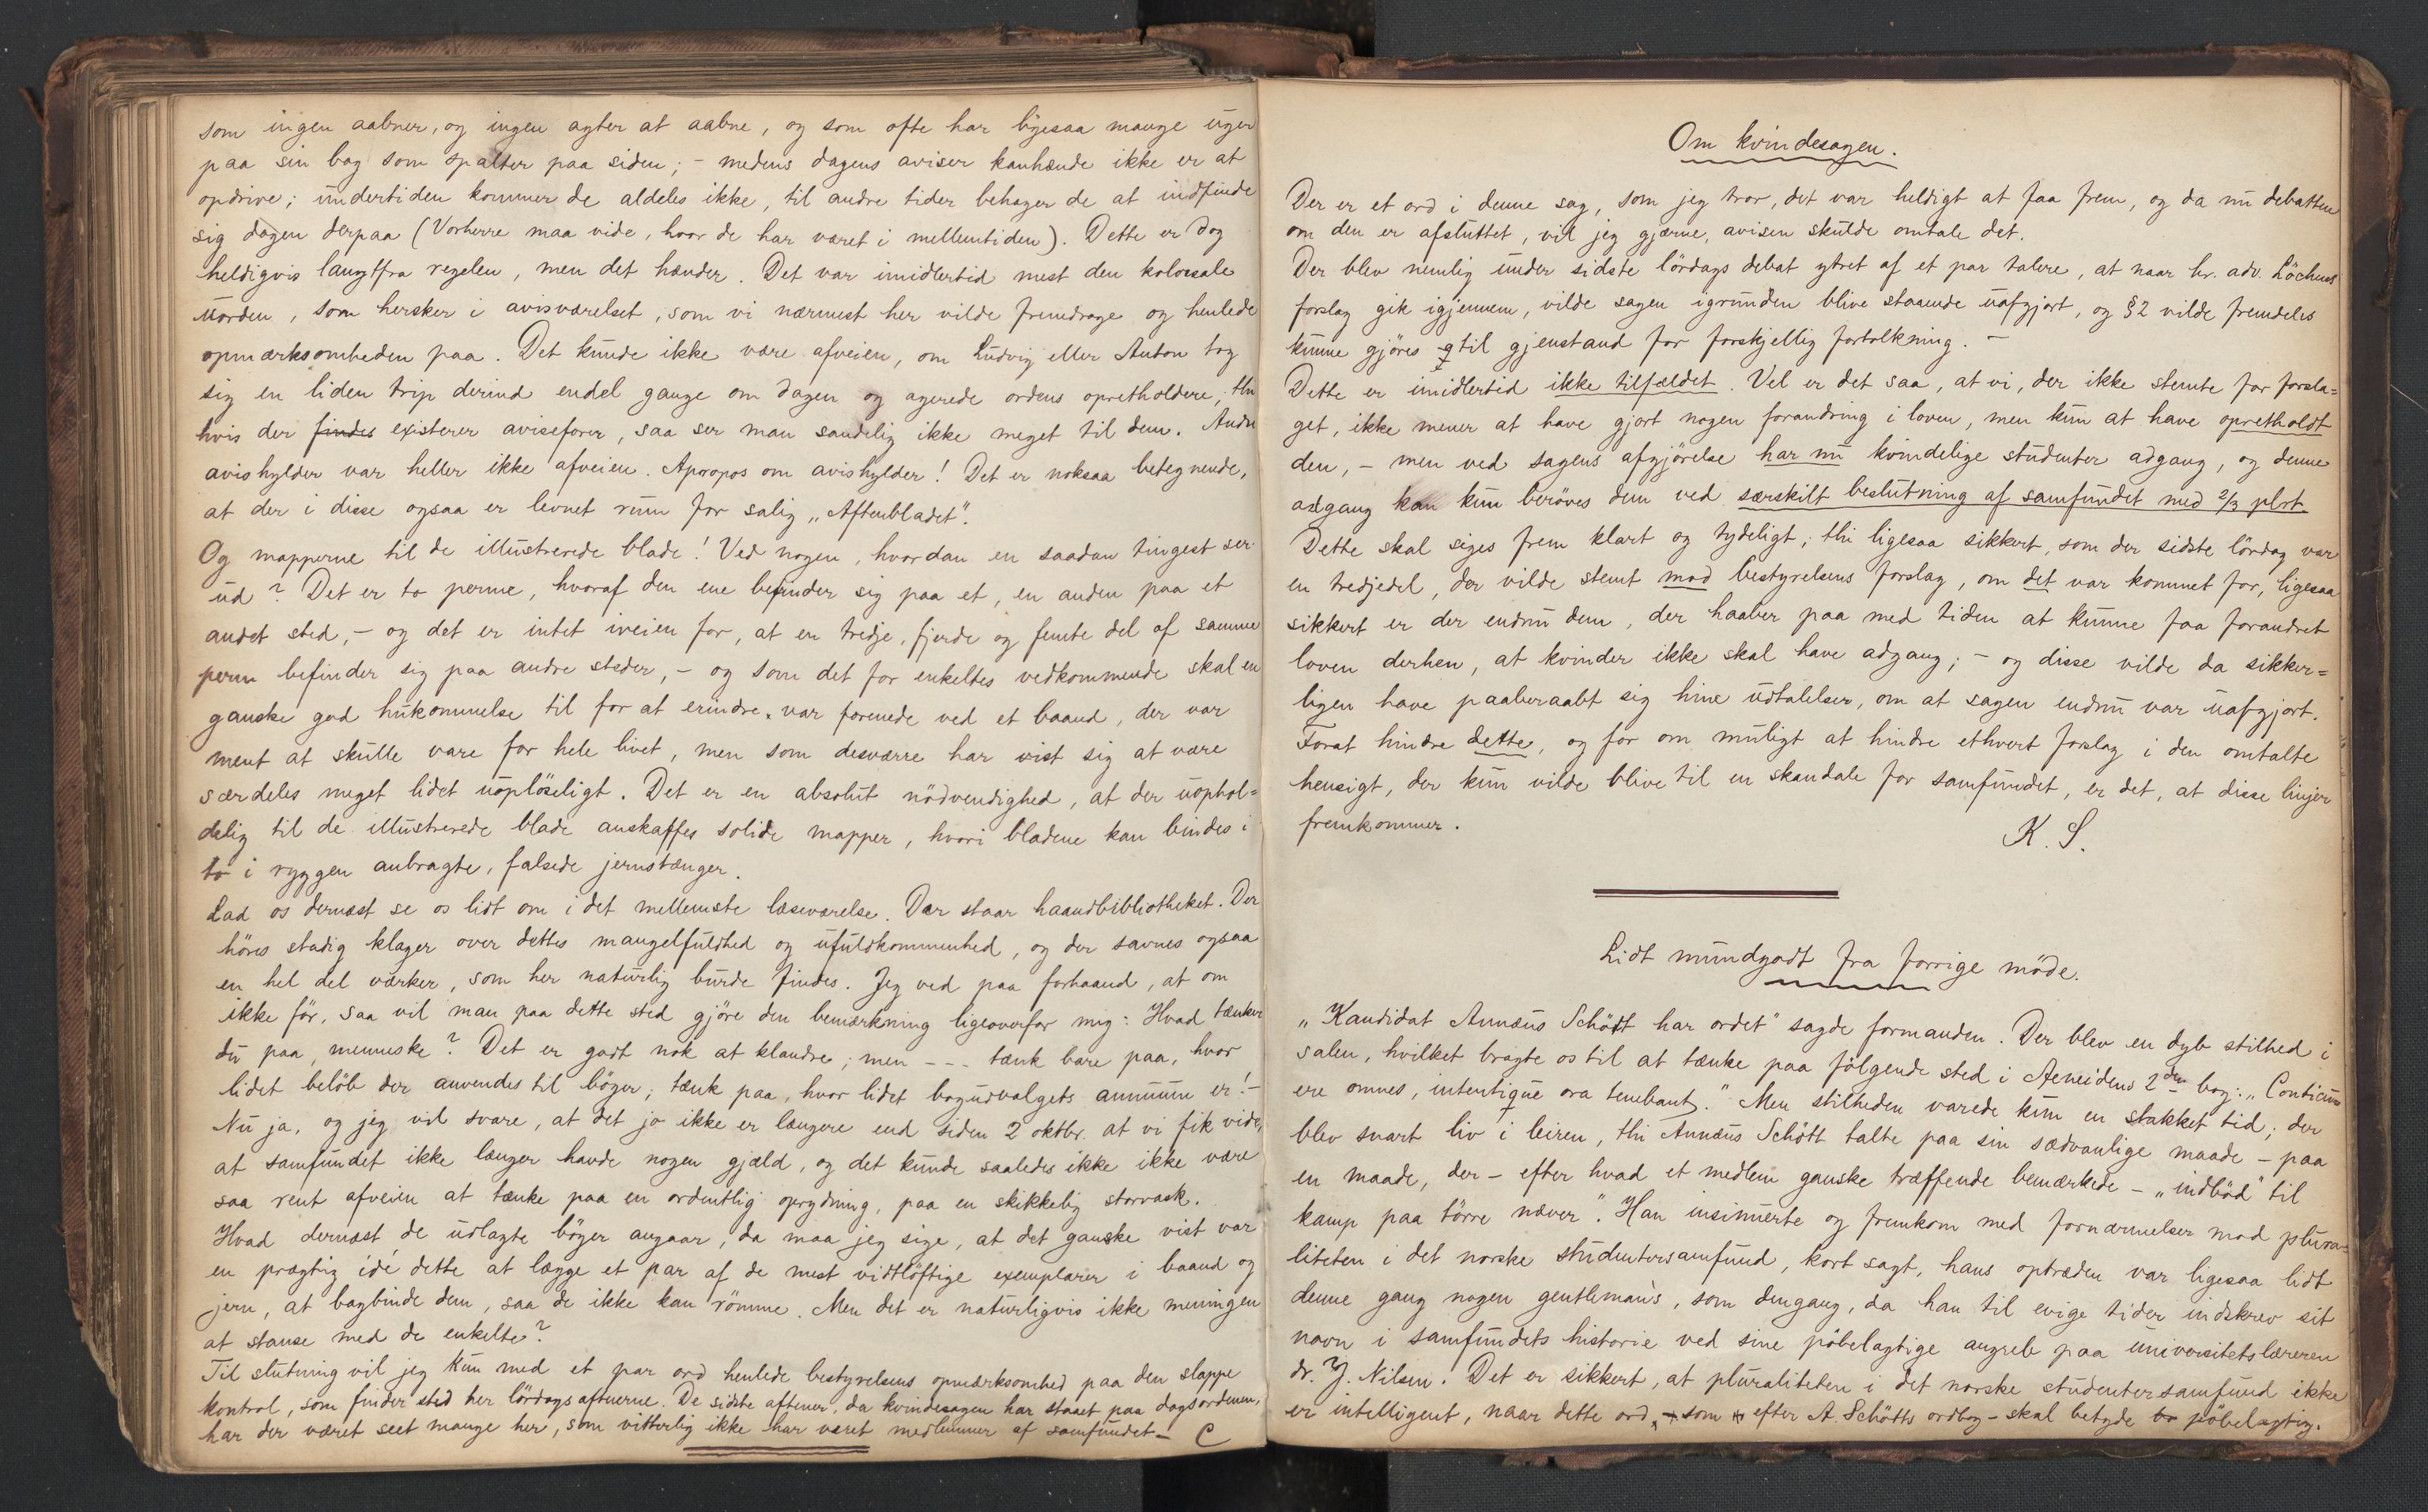 som ingen aabner, og ingen agter at aabne, og som ofte har ligesaa mange uger
paa sin bag som spalter paa siden; - medens dagens aviser kanhænde ikke er at
opdrive; undertiden kommer de aldeles ikke, til andre tider behager de at indfinde
sig dagen derpaa (Vorherre maa vide, hvor de har været i mellemtiden). Dette er dog
heldigvis langtfra regelen, men det hænder. Det var imidlertid mest den kolossale
uorden, som hersker i avisværelset, som vi nærmest her vilde fremdrage og henlede
opmærksomheden paa. Det kunde ikke være afveien, om Ludvig eller Anton tog
sig en liden trip derind endel gange om dagen og agerede ordens opretholdere; thi
hvis der findes existerer aviseforer, saa ser man sandelig ikke meget til dem. Andre
avishylder var heller ikke afveien. Apropos om avishylder! Det er noksaa betegnende,
at der i disse ogsaa er levnet rum for salig „Aftenbladet".
Og mapperne til de illustrerede blade! Ved nogen, hvordan en saadan tingest ser
ud? Det er to perme, hvoraf den ene befinder sig paa et, en anden paa et
andet sted, - og det er intet iveien for, at en tredje, fjerde og femte del af samme
perm befinder sig paa andre steder, - og som det for enkeltes vedkommende skal en
ganske god hukommelse til for at erindre, var forenede ved et baand, der var
ment at skulle vare for hele livet, men som desværre har vist sig at være
særdeles meget lidet uopløseligt. Det er en absolut nödvendighed, at der uophol=
delig til de illustrerede blade anskaffes solide mapper, hvori bladene kan bindes i
to i ryggen anbragte, falsede jernstænger.
Lad os dernæst se os lidt om i det mellemste læseværelse. Der staar haandbibliotheket. Der
höres stadig klager over dettes mangelfuldhed og ufuldkommenhed, og der savnes ogsaa
en hel del værker, som her naturlig burde findes. Jeg ved paa forhaand, at om
ikke för, saa vil man paa dette sted gjöre den bemærkning ligeoverfor mig: Hvad tænker
du paa, menneske? Det er godt nok at klandre; men - - - tænk bare paa, hvor
lidet belöb der anvendes til böger; tænk paa, hvor lidet bogudvalgets annuum er! -
Nu ja, og jeg vil svare, at det jo ikke er længere end siden 2 oktbr. at vi fik vide,
at samfundet ikke længer havde nogen gjæld, og det kunde saaledes ikke ikke være
saa rent afveien at tænke paa en ordentlig oprydning, paa en skikkelig storvask.
Hvad dernæst de udlagte böger angaar, da maa jeg sige, at det ganske vist var
en prægtig idé dette at lægge et par af de mest vidtlöftige exemplarer i baand og
jern, at bagbinde dem, saa de ikke kan römme. Men det er naturligvis ikke meningen
at stanse med de enkelte?
Til slutning vil jeg kun med et par ord henlede bestyrelsens opmærksomhed paa den slappe
kontrol, som finder sted her lördagsaftnerne. De sidste aftener, da kvindesagen har staaet paa dagsordenen,
har der været seet mange her, som vitterlig ikke har været medlemmer af samfundet - C
Om kvindesagen.
Der er et ord i denne sag, som jeg tror, det var heldigt at faa frem, og da nu debatten
om den er afsluttet, vil jeg gjærne, avisen skulde omtale det.
Der blev nemlig under sidste lördags debat ytret af et par talere, at naar hr. adv. Löchens
forslag gik igjennem, vilde sagen igrunden blive staaende uafgjort, og §2 vilde fremdeles
kunne gjöres til gjenstand for forskjellig fortolkning. -
Dette er imidlertid ikke tilfældet. Vel er det saa, at vi, der ikke stemte for forsla=
get, ikke mener at have gjort nogen forandring i loven, men kun at have opretholdt
den, - men ved sagens afgjörelse har nu kvindelige studenter adgang, og denne
adgang kan kun berøves dem ved særskilt beslutning af samfundet med 2/3 plrt.
Dette skal siges frem klart og tydeligt; thi ligesaa sikkert, som der sidste lördag var
en tredjedel, der vilde stemt mod bestyrelsens forslag, om det var kommet for, ligesaa
sikkert er der endnu dem, der haaber paa med tiden at kunne faa forandret
loven derhen, at kvinder ikke skal have adgang; - og disse vilde da sikker=
ligen have paaberaabt sig hine udtalelser, om at sagen endnu var uafgjort.
Forat hindre dette, og for om muligt at hindre ethvert forslag i den omtalte
hensigt, der kun vilde blive til en skandale for samfundet, er det, at disse linjer
fremkommer.
K. S.
Lidt mundgodt fra forrige möde.
„Kandidat Annæus Schött har ordet" sagde formanden. Der blev en dyb stilhed i
salen, hvilket bragte os til at tænke paa fölgende sted i Aeneidens 2den bog: „Conticu=
ere omnes, intentique ora tenebant." Men stilheden varede kun en stakket tid; der
blev snart liv i leiren, thi Annæus Schött talte paa sin sædvanlige maade - paa
en maade, der - efter hvad et medlem ganske træffende bemærkede - „indböd til
kamp paa törre næver". Han insinuerte og fremkom med fornærmelser mod plura=
liteten i det norske studentersamfund, kort sagt, hans optræden var ligesaa lidt
denne gang nogen gentleman's, som dengang, da han til evige tider indskrev sit
navn i samfundets historie ved sine pöbelagtige angreb paa universitetslæreren
dr. Y. Nilsen. Det er sikkert, at pluraliteten i det norske studentersamfund ikke
er intelligent, naar dette ord, - som efter A. Schötts ordbog - skal betyde pöbelagtig.